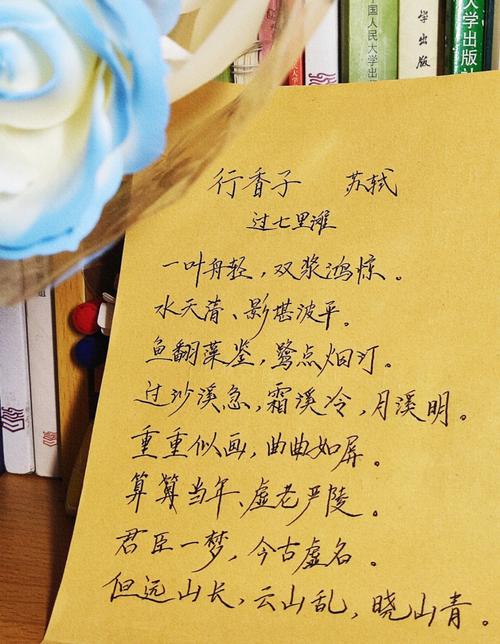 国人民大学出
学出版
大学出版社
行香子 苏轼
过七里滩
一叶舟轻,双桨鸿惊。
水天清、影堪波平。
鱼翻藻鉴,鹭点烟汀。
过沙溪急,霜溪冷,月溪明。
重重似画,曲曲如屏。
算算当年、虚老严陵。
君臣一梦,今古虚名。
但远山长,云山乱,晓山青。